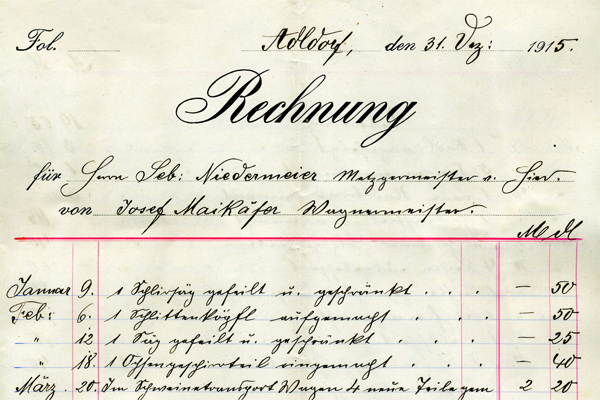 Fol. Adldorf, den 31. Dez: 1915.
Rechnung
für Herrn Seb: Niedermeier Metzgermeister v. Hier.
von Josef Maikäfer Wagnermeister.
M ₰
Januar 9. 1 gefeilt u. geschränkt . . . — 50
Feb: 6. 1 Schlittenköpfl aufgemacht . . . — 50
" 12 1 Säg gefeilt u. geschränkt . . . . — 25
" 18. 1 Ochsengeschirrteil eingemacht . . . — 40
März . 20. Im Schweinetransport Wagen 4 neue Teile gem 2 20